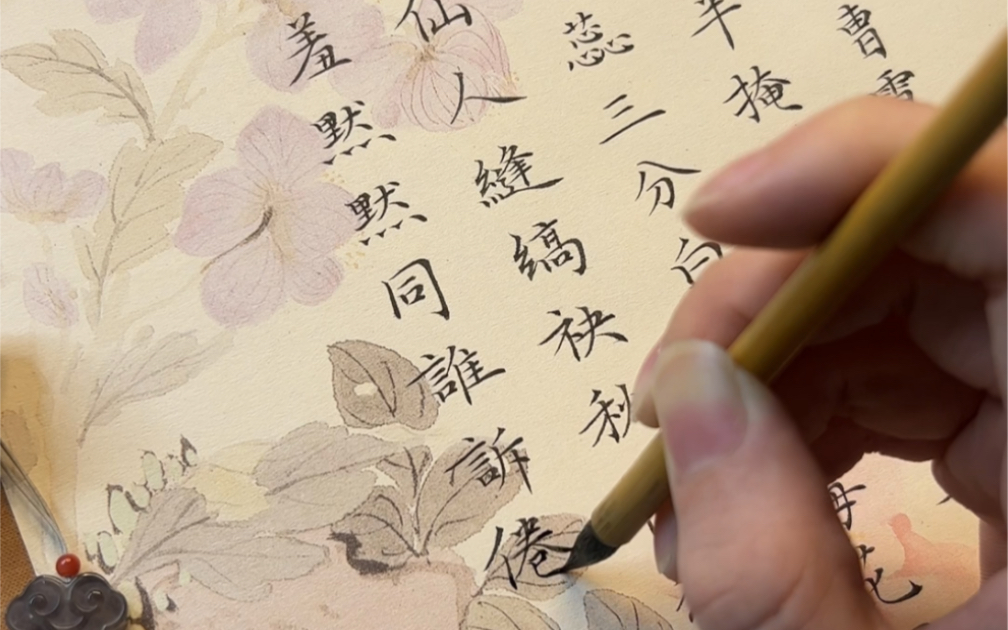 曹雪
半掩
蕊三分白梅花
仙人縫縞袂秋
羞默默同誰訴倦